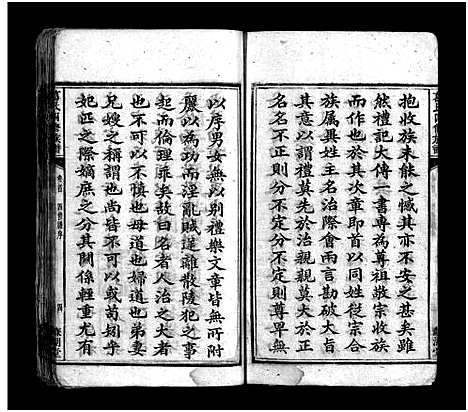 抱收族未能之憾其亦不安之甚矣雖
然禮記大傳一書專為尊祖敬宗收族
而作也於其次章即首以同姓從宗合
族屬異姓主名治際會兩言勘破大旨
其意以謂禮莫先於治親親莫大於正
名名不正則分不定分不定則尊卑無
以序男女無以別禮樂文章皆無所附
麗以為功而淫亂賊逆離散陵犯之事
起而倫理斁矣故曰名者人治之大者
也不可以不慎也母道也婦道也弟妻
兄嫂之稱謂也尚皆不可以或苟矧乎
妃匹之際嫡庶之分其關係輕重尤有
卷首
四修譜序
四